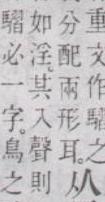 重文作驦之
分配兩形耳。从
如淫。其入聲則
騽必一字。鳥之